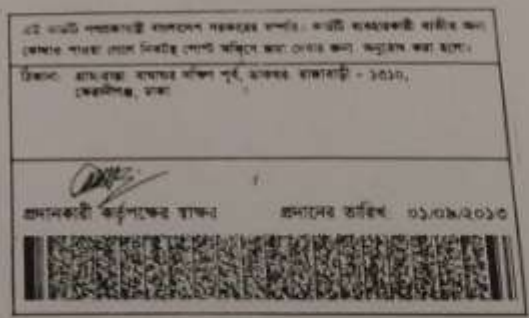 এই কার্ডটি গণপ্রজাতন্ত্রী বাংলাদেশ সরকারের সম্পত্তি। কার্ডটি ব্যবহারকারী ব্যতীত অন্য
কোথাও পাওয়া গেলে নিকটস্থ পোস্ট অফিসে জমা দেবার জন্য অনুরোধ করা হলো।
ঠিকানা: গ্রাম/রাস্তা: দক্ষিণ পূর্ব, ডাকঘর: - ১৩১০,
কেরানীগঞ্জ, ঢাকা
প্রদানকারী কর্তৃপক্ষের স্বাক্ষর প্রদানের তারিখ ০১/০৯/২০১৩